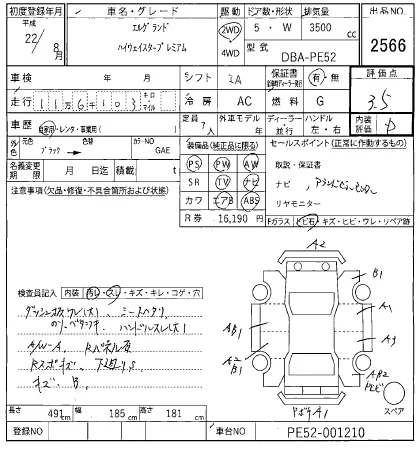 初度登録年月 車名・グレード 駆動 ドア数/形状 排気量 出品NO.
平成 22年 8月 エルグランド 2WD 4WD 5・W 3500cc 2566
ハイウェイスタープレミアム 型式 DBA-PE52
車検 年 月 シフト IA 保証書 有・無 評価点
走行 116103 キロ・マイル 冷房 AC 燃料 G 3.5
車歴 自家用・レンタ・事業用( ) 定員 7人 外車モデル 年 ディーラー 並行 ハンドル 左・右 内装評価 D
外色 元色 ブラック 色 カラーNO GAE 装備品(純正品に限る) セールスポイント(正常に作動するもの)
名義変更期限 月 日迄 積載 t PS PW AW 取説・保証書
注意事項(欠品・修復・不具合箇所および状態) SR TV ナビ ナビ、アラウンドビューモニター
カワ エアB ABS リヤモニター
R券 16,190円 Fガラス トビ石・キズ・ヒビ・ワレ・リペア跡
A2
B1
A1
AB1
A3
A2
B1
検査員記入 内装 汚レ・スレ・キズ・キレ・コゲ・穴
ハンドルスレ(大)
A/W-A
キズ B
A1
スペア
長さ 491cm 幅 185cm 高さ 181cm
登録NO 車台NO PE52-001210